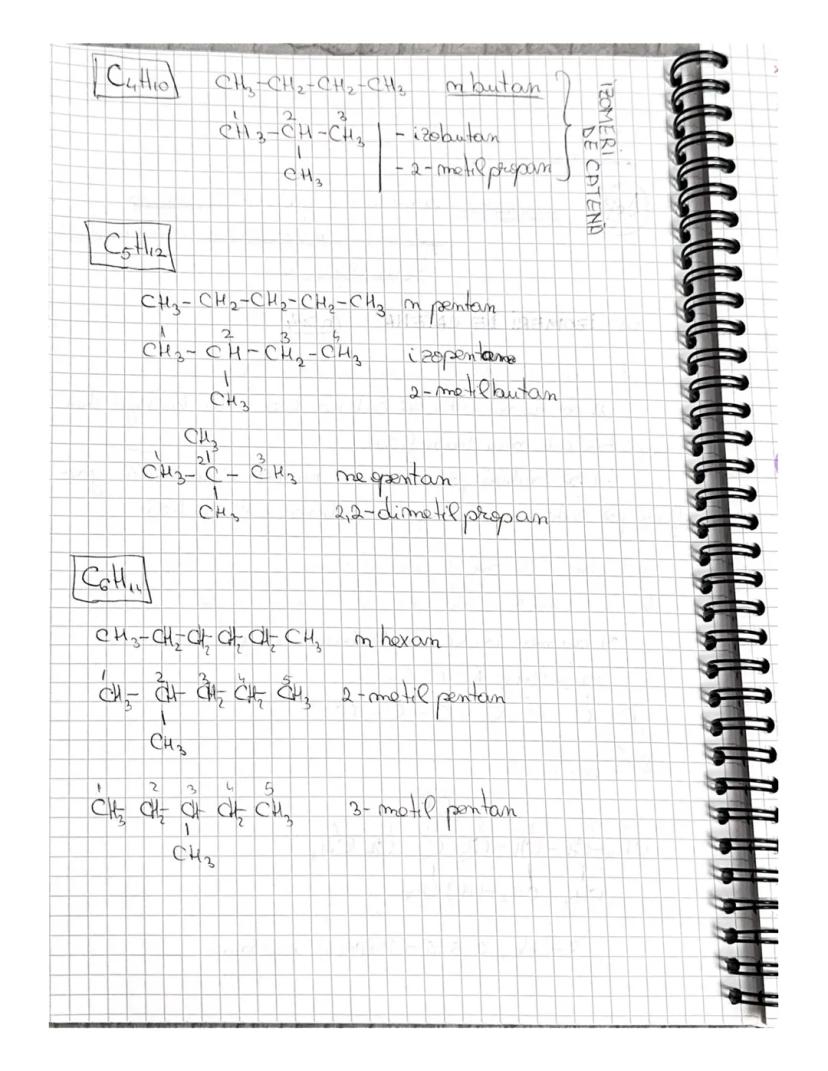 C₄H₁₀ CH₃-CH₂-CH₂-CH₃ n butan
1 2 3
CH₃-CH-CH₃ - izobutan
CH₃ - 2-metilpropan
IZOMERI
DE CATENĂ
C₅H₁₂
CH₃-CH₂-CH₂-CH₂-CH₃ n pentan
1 2 3 4
CH₃-CH-CH₂-CH₃ izopentan
CH₃ 2-metilbutan
CH₃
1 2 3
CH₃-C-CH₃ neopentan
CH₃ 2,2-dimetilpropan
C₆H₁₄
CH₃-CH₂-CH₂-CH₂-CH₂-CH₃ n hexan
1 2 3 4 5
CH₃-CH-CH₂-CH₂-CH₃ 2-metil pentan
CH₃
1 2 3 4 5
CH₃-CH₂-CH-CH₂-CH₃ 3-metil pentan
CH₃